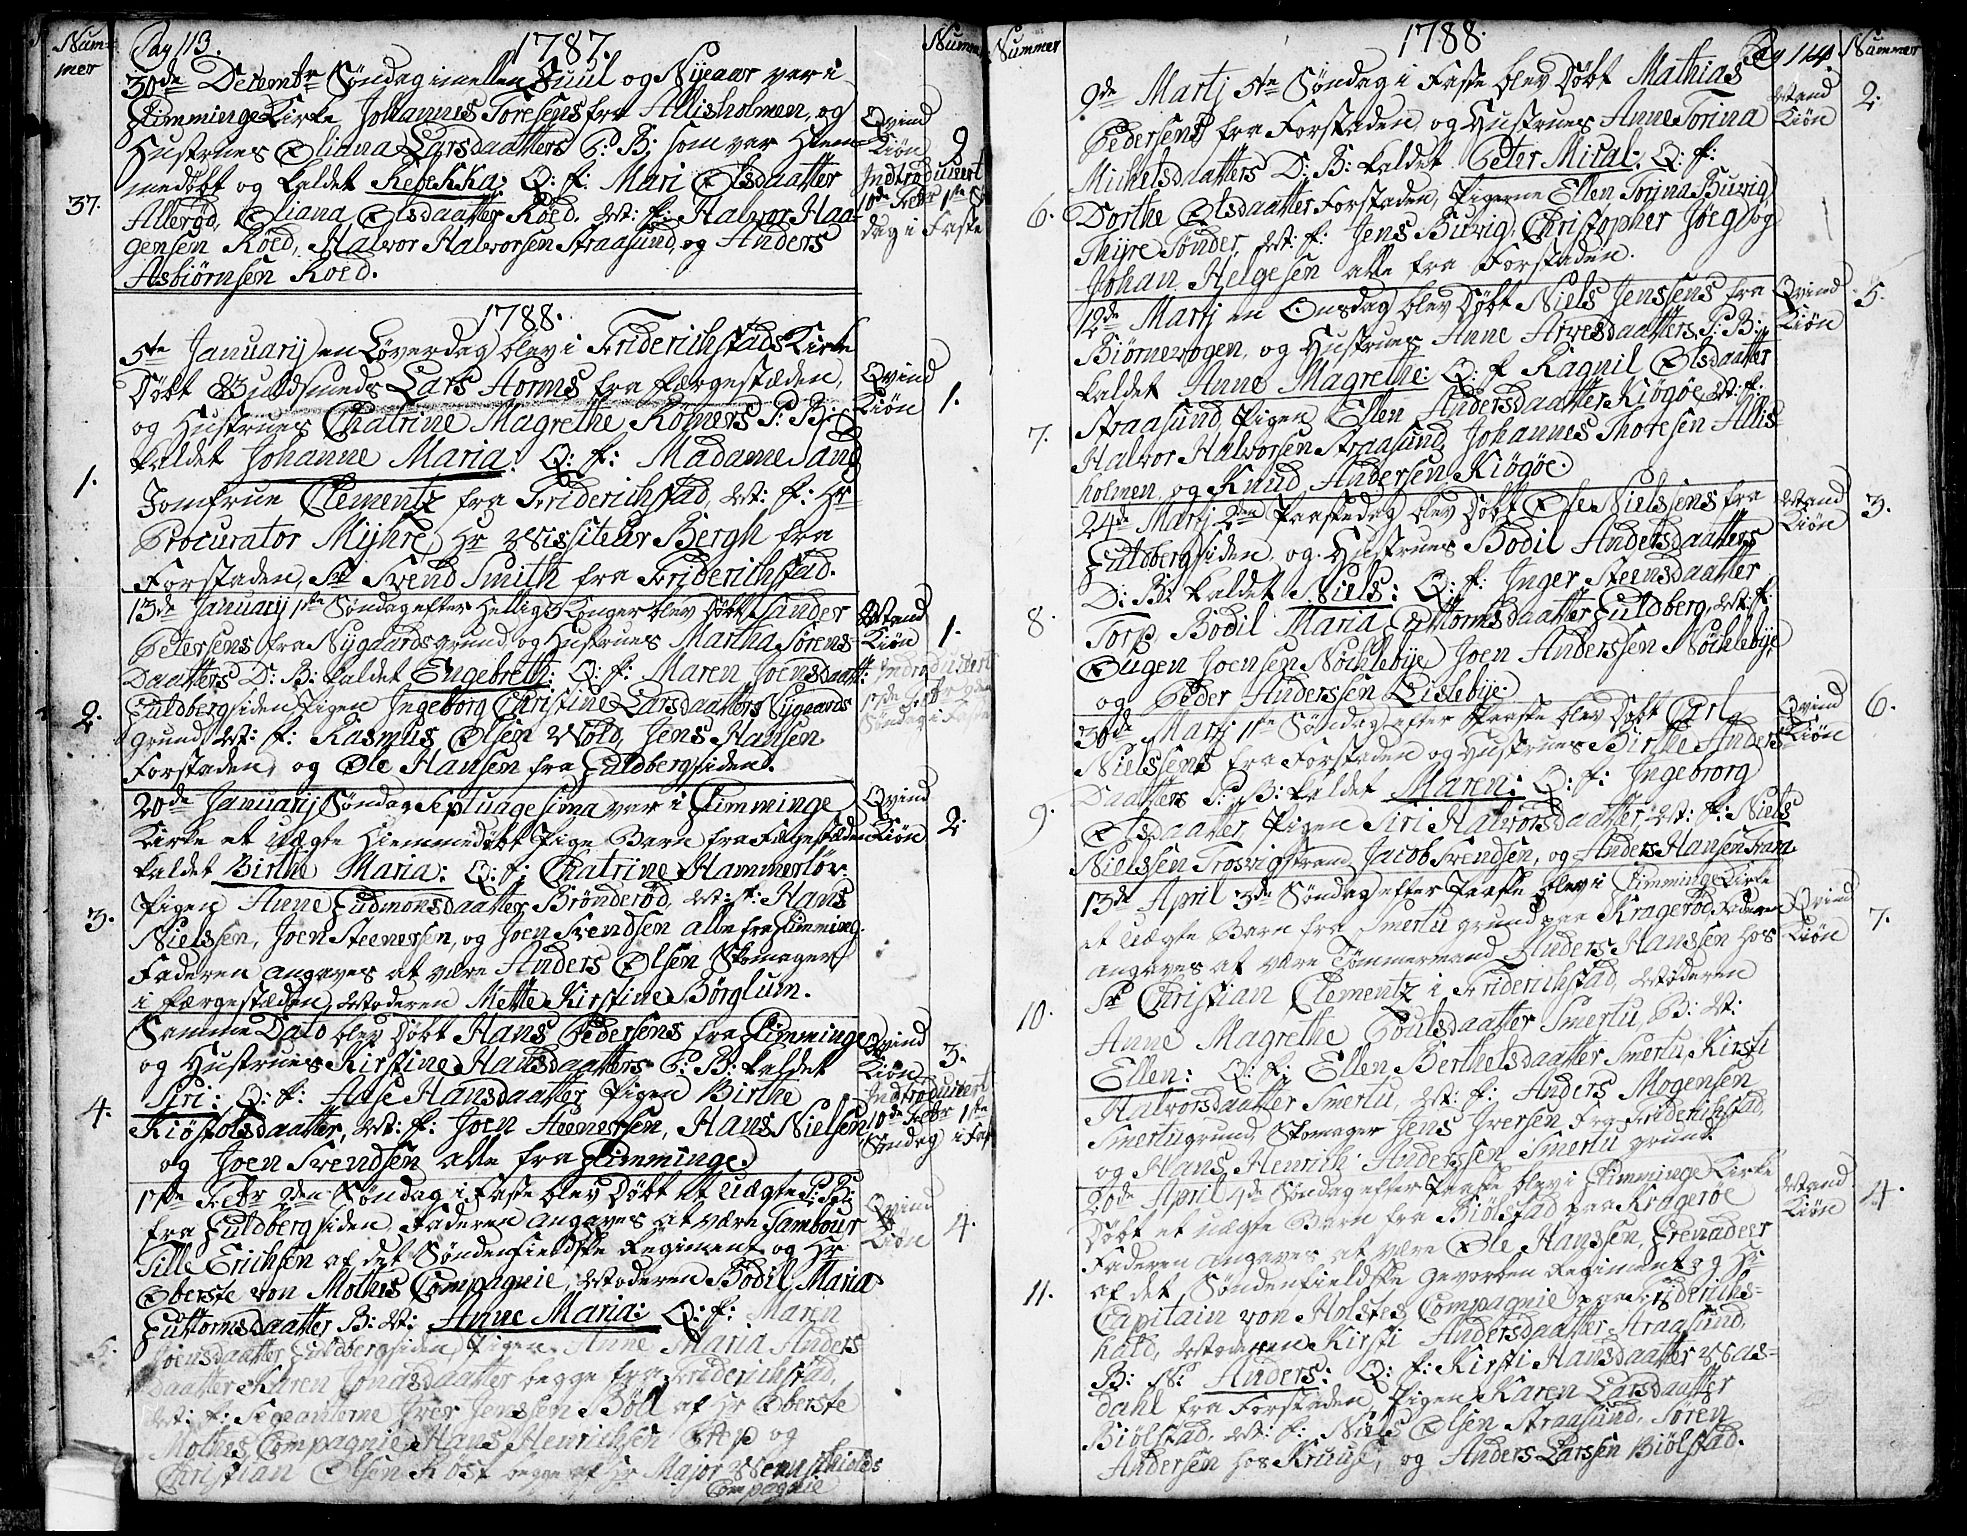 Num-
mer
Pag 113.
1787.
Nummer
30de Decembr Søndag imellem Juul og Nyeaar var i
Glimminge Kirke Johannes Toresens fra Allisholmen, og
Hustrues Oliana Larsdaatters P: B: som var Hiem-
medøbt og kaldet Rebekka: Q: f: Mari Olsdaatter
Allerød, Oliana Olsdaatter Roed. M: f: Halvor Haa-
gensen Roed, Halvor Halvorsen Straasund, og Anders
Asbiørnsen Roed.
37.
Qvind
Kiøn
9
Indtroduceret
10de Febr 1ste Søn
dag i Faste
1788.
5te Januarij en Løverdag blev i Friderichstads Kirke
Døbt Guldsmed Lars Horms fra Færgestæden,
og Hustrues Chatrine Magrethe Kørners P: B:
kaldet Johanne Maria: Q: f: Madame Sand
Jomfrue Clementz fra Friderichstad, M: f: Hr
Procurator Myhre, Hr Visiteur Bergh fra
Forstaden, Sr Svend Smith fra Friderichstad.
1.
Qvind
Kiøn
1.
13de Januarij 1ste Søndag efter Hellig 3 Konger blev Døbt Sander
Petersens fra Nygaardsgrund og Hustrues Martha Sørens
Daatters D: B: kaldet Engebreth: Q: f: Maren Joensdaatt:
Guldbergsiden Pigen Ingeborg Christine Larsdaatters Nygaards
grund, M: f: Rasmus Olsen Vold, Jens Hansen
Forstaden, og Ole Hansen fra Guldbergsiden.
2.
Mand
Kiøn
1.
Indroducert
17de Febr 2den
Søndag i Faste
20de Januarij Søndag Septuagesima var i Glimminge
Kirke et Uægte Hiemmedøbt Pige Barn fra Færgestæden
kaldet Birthe Maria: Q: f: Chatrine Hammerlør
Pigen Anne Gudmonsdaatter Brønderød, M: f: Hans
Nielssen, Joen Steenersen, og Joen Svendsen alle fra Glimming.
Faderen angaves at være Anders Olsen Skomager
i Færgestæden, Moderen Mette Kirstine Børglum.
3.
Qvind
Kiøn
2
Samme Dato blev Døbt Hans Pedersens fra Glimminge
og Hustrues Kirstine Hansdaatters P: B: kaldet
Siri: Q: f: Aase Hansdaatter Pigen Birthe
Kiøstolsdaatter, M: f: Joen Steenerssen, Hans Nielsen
og Joen Svendsen alle fra Glimminge.
4.
Qvind
Kiøn
3.
Indtroducert
10de Febr 1ste
Søndag i Fas
17de Febr 2den Søndag i Faste blev Døbt et Uægte P: B:
fra Guldbergsiden Faderen angaves at være Tambour
Tille Erichsen af det Søndenfieldske Regiment og Hr
Oberste von Mothes Compagnie, Moderen Bodil Maria
Guttormsdaatter B: N: Anne Maria: Q: f: Maren
Joensdaatter Guldbergsiden, Pigen Anne Maria Anders
daatter Karen Jonasdaatter begge fra Friderichstad,
M: f: Sergianterne Iver Jenssen Bøll af Hr Oberste
Mothes Compagnie Hans Henrichsen og
Christian Olsen Kost begge af Hr Major Wernschiolds
Compagnie
5.
Qvind
Kiøn
4.
Nummer
1788.
Pag 114.
Nummer
9de Martj 5te Søndag i Faste blev Døbt Mathias
Pedersens fra Forstaden, og Hustrues Anne Torina
Michelsdaatters D: B: kaldet Peter Mical: Q: f:
Dorthe Olsdaatter Forstaden, Pigerne Ellen Torina Buvig,
Thyre Sønder, M: f: Jens Buvig, Christopher Joeg og
Johan Helgesen alle fra Forstaden.
6.
Mand
Kiøn
2.
12de Martj en Onsdag blev Døbt Niels Jenssens fra
Biørnevogen, og Hustrues Anne Arvesdaatters P: B:
kaldet Anne Magrethe: Q: f: Ragnil Olsdaatter
Straasund, Pigen Ellen Andersdaatter Kiøgøe, M: f:
Halvor Halvorsen Straasund, Johannes Thoresen Allis-
holmen, og Knud Andersen Kiøgøe.
7.
Qvind
Kiøn
5.
24de Martj 2den Paaskedag blev Døbt Ole Nielssens fra
Guldbergsiden, og Hustrues Bodil Andersdaatters
D: B: kaldet Niels: Q: f: Inger Steensdaatter
Torp, Bodil Maria Guttormsdaatter Guldberg, M: f:
Eugen Joensen Nøchlebye, Joen Anderssen Nøchlebye
og Peder Anderssen Lislebye.
8.
Mand
Kiøn
3.
30de Martj 1ste Søndag efter Paaske blev Døbt Carl
Nielssens fra Forstaden og Hustrues Birthe Anders
Daatters P: B: kaldet Maren: Q: f: Ingebrorg
Olsdaatter, Pigen Siri Halvorsdaatter, M: f: Niels
Nielssen Trosvigstrand, Jacob Svendsen, og Anders Hansen Trara.
9.
Qvind
Kiøn
6.
13de April 3de Søndag efter Paaske blev i Glimminge Kirke
et Uægte Barn fra Smertu grund paa Kragerøe Faderen
angaves at være Tømmermand Anders Hanssen hos
Sr Christian Clementz i Friderichstad, Moderen
Anne Magrethe Poulsdaatter Smertu, B: N:
Ellen: Q: f: Ellen Berthelsdaatter Smertu, Kirsti
Halvorsdaatter Smertu, M: f: Anders Mogensen
Smertugrund, Skomager Jens Iversen fra Friderichstad,
og Hans Henrich Anderssen Smertu grund
10.
Qvind
Kiøn
7.
20de April 4de Søndag efter Paaske blev i Glimminge Kirke
Døbt et uægte Barn fra Biølstad paa Kragerøe
Faderen angaves at være Ole Hanssen, Grenadeer
af det Søndenfieldske Gevorben Regiment og Hr
Capitain von Holstes Compagnie paa Friderichs-
hald, Moderen Kirsti Andersdaatter Straasund,
B: N: Anders: Q: f: Kirsti Hansdaatter Vas-
dahl fra Forstaden, Pigen Karen Larsdaatter
Biølstad. M: f: Niels Olsen Straasund, Søren
Andersen hos Kruuse, og Anders Larssen Biølstad.
11.
Mand
Kiøn
4.